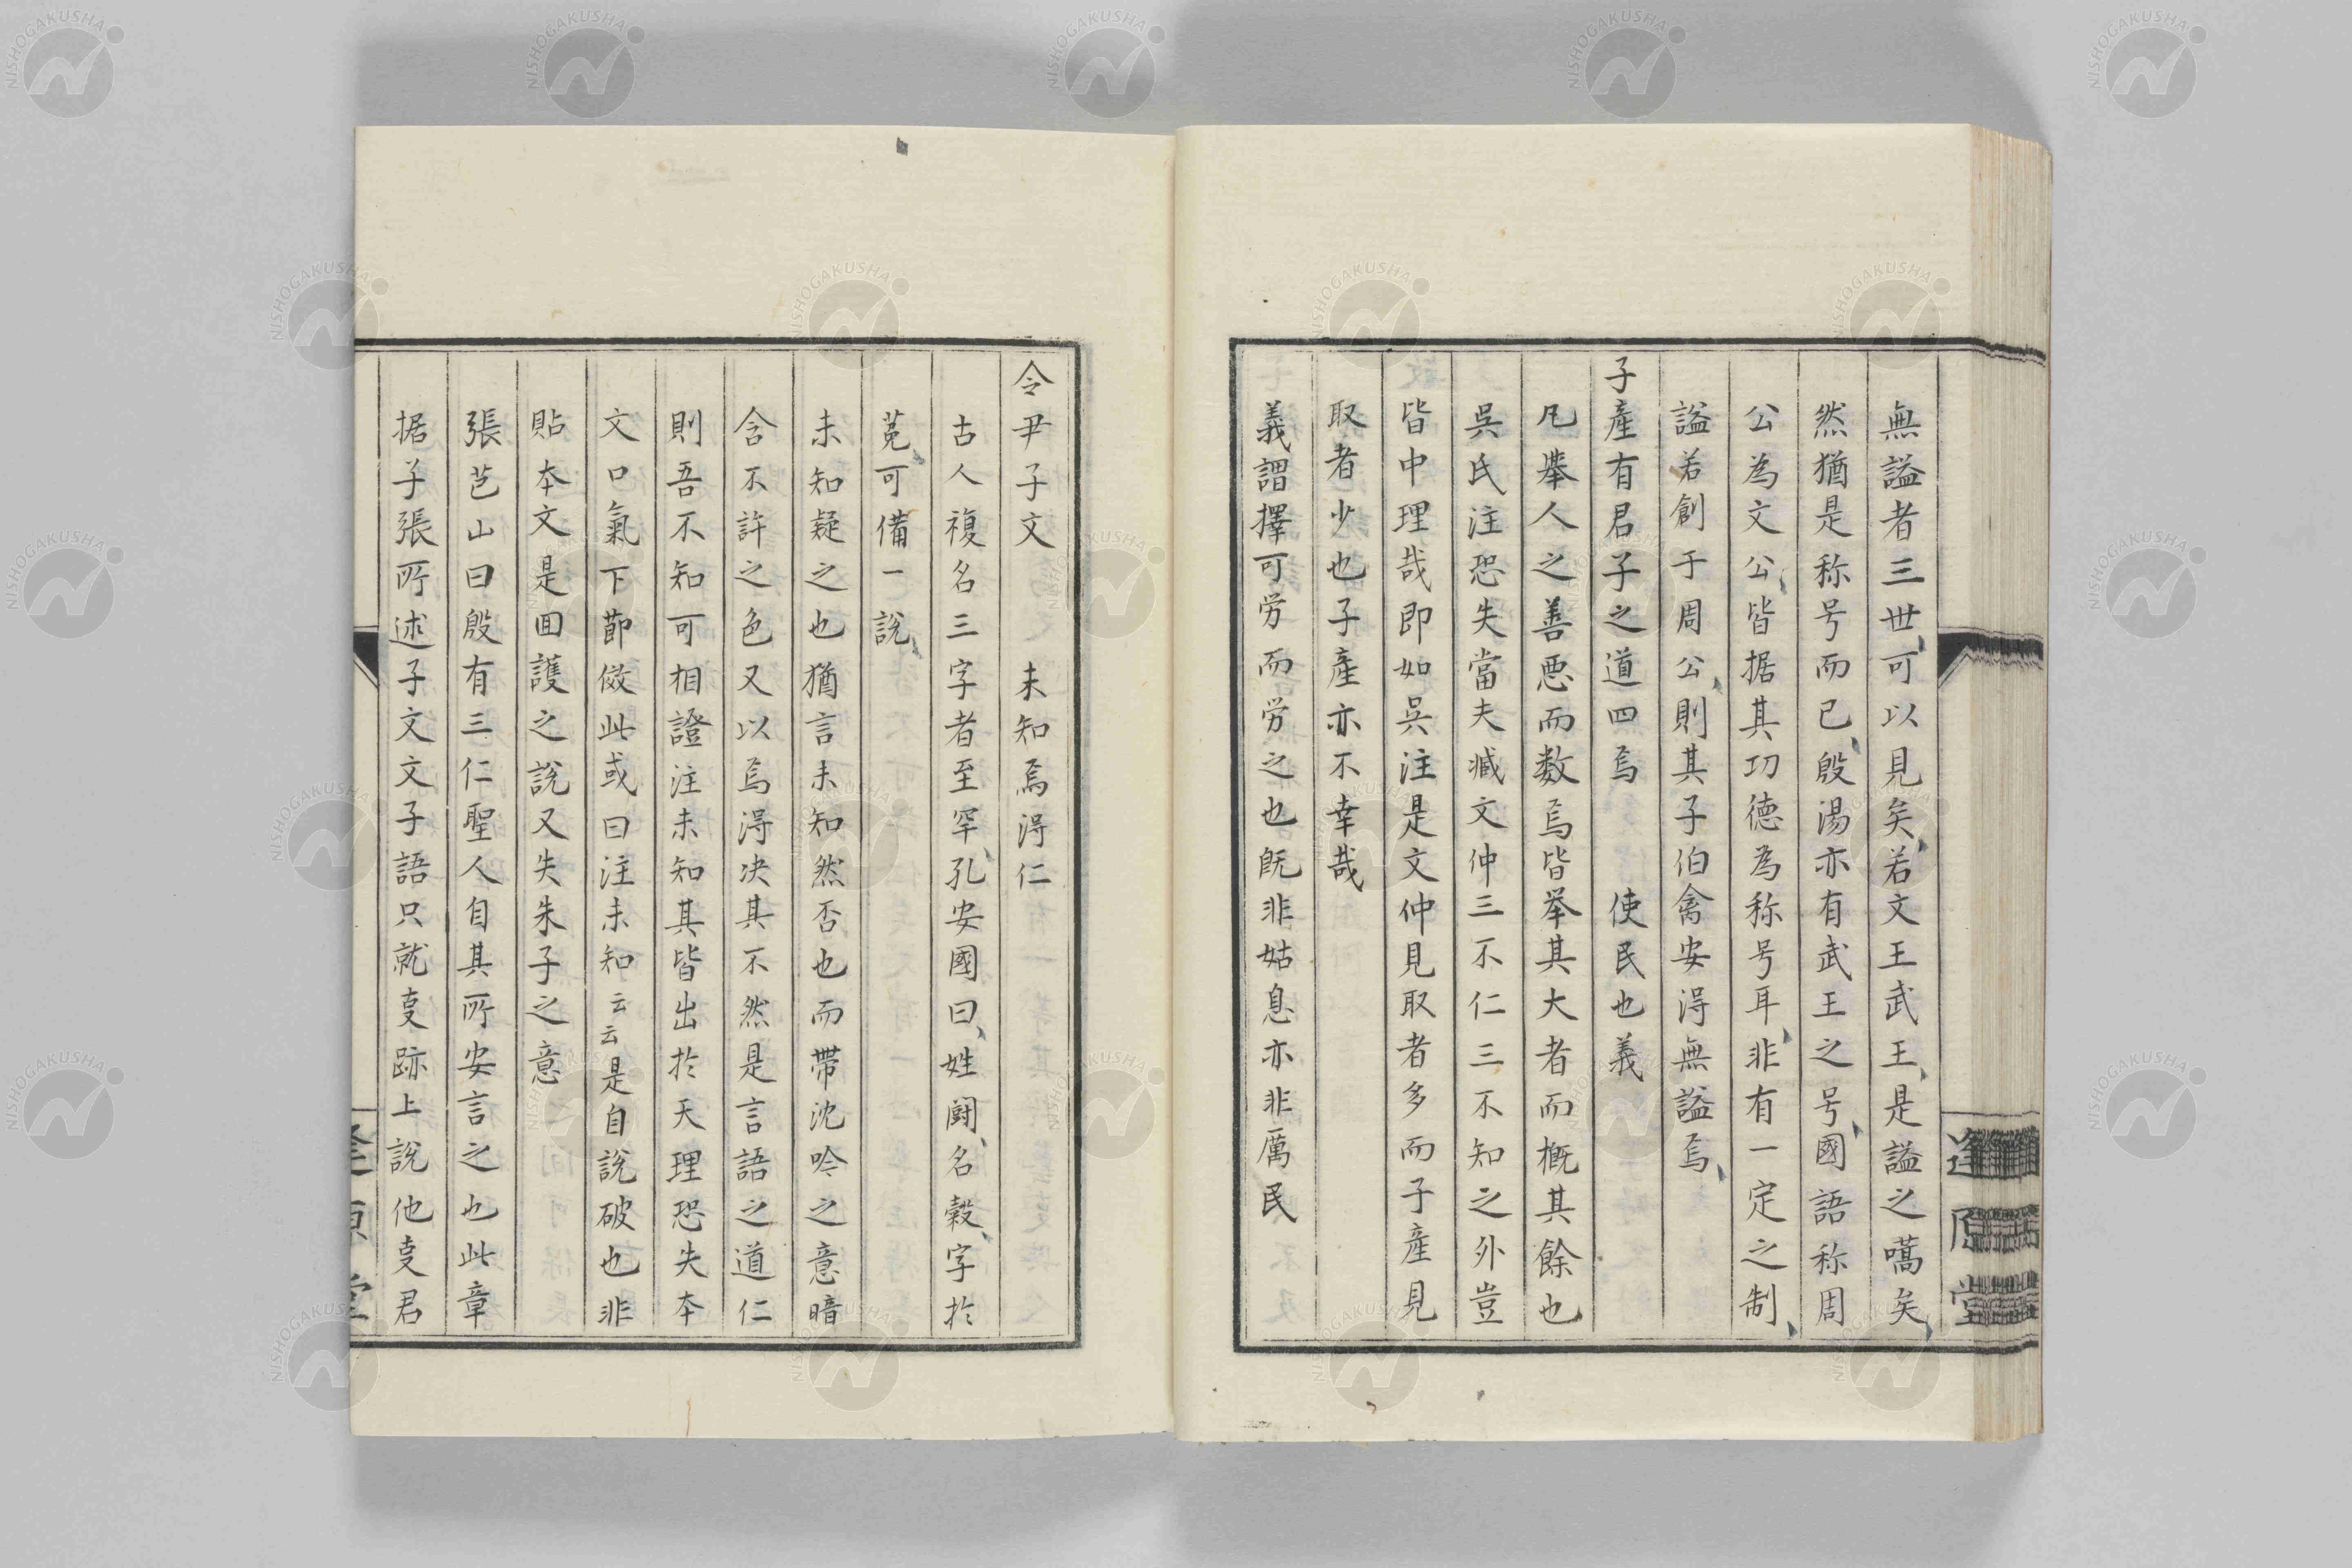 無謚者三世可以見矣若文王武王是謚之嚆矢
然猶是称号而已殷湯亦有武王之号國語称周
公為文公皆据其功德為称号耳非有一定之制
謚若創于周公則其子伯禽安得無謚焉
子產有君子之道四焉　使民也義
凡舉人之善悪而数焉皆举其大者而概其餘也
吳氏注恐失當夫臧文仲三不仁三不知之外豈
皆中理哉即如吳注是文仲見取者多而子產見
取者少也子產亦不幸哉
義謂擇可労而労之也既非姑息亦非厲民
逢原堂
令尹子文　未知焉得仁
古人複名三字者至罕孔安國曰姓闘名穀字於
菟可備一說
未知疑之也猶言未知然否也而帶沈吟之意暗
含不許之色又以焉得决其不然是言語之道仁
則吾不知可相證注未知其皆出於天理恐失本
文口氣下節倣此或曰注未知云云是自說破也非
貼本文是回護之說又失朱子之意
張芑山曰殷有三仁聖人自其所安言之也此章
据子張所述子文文子語只就叓跡上說他叓君